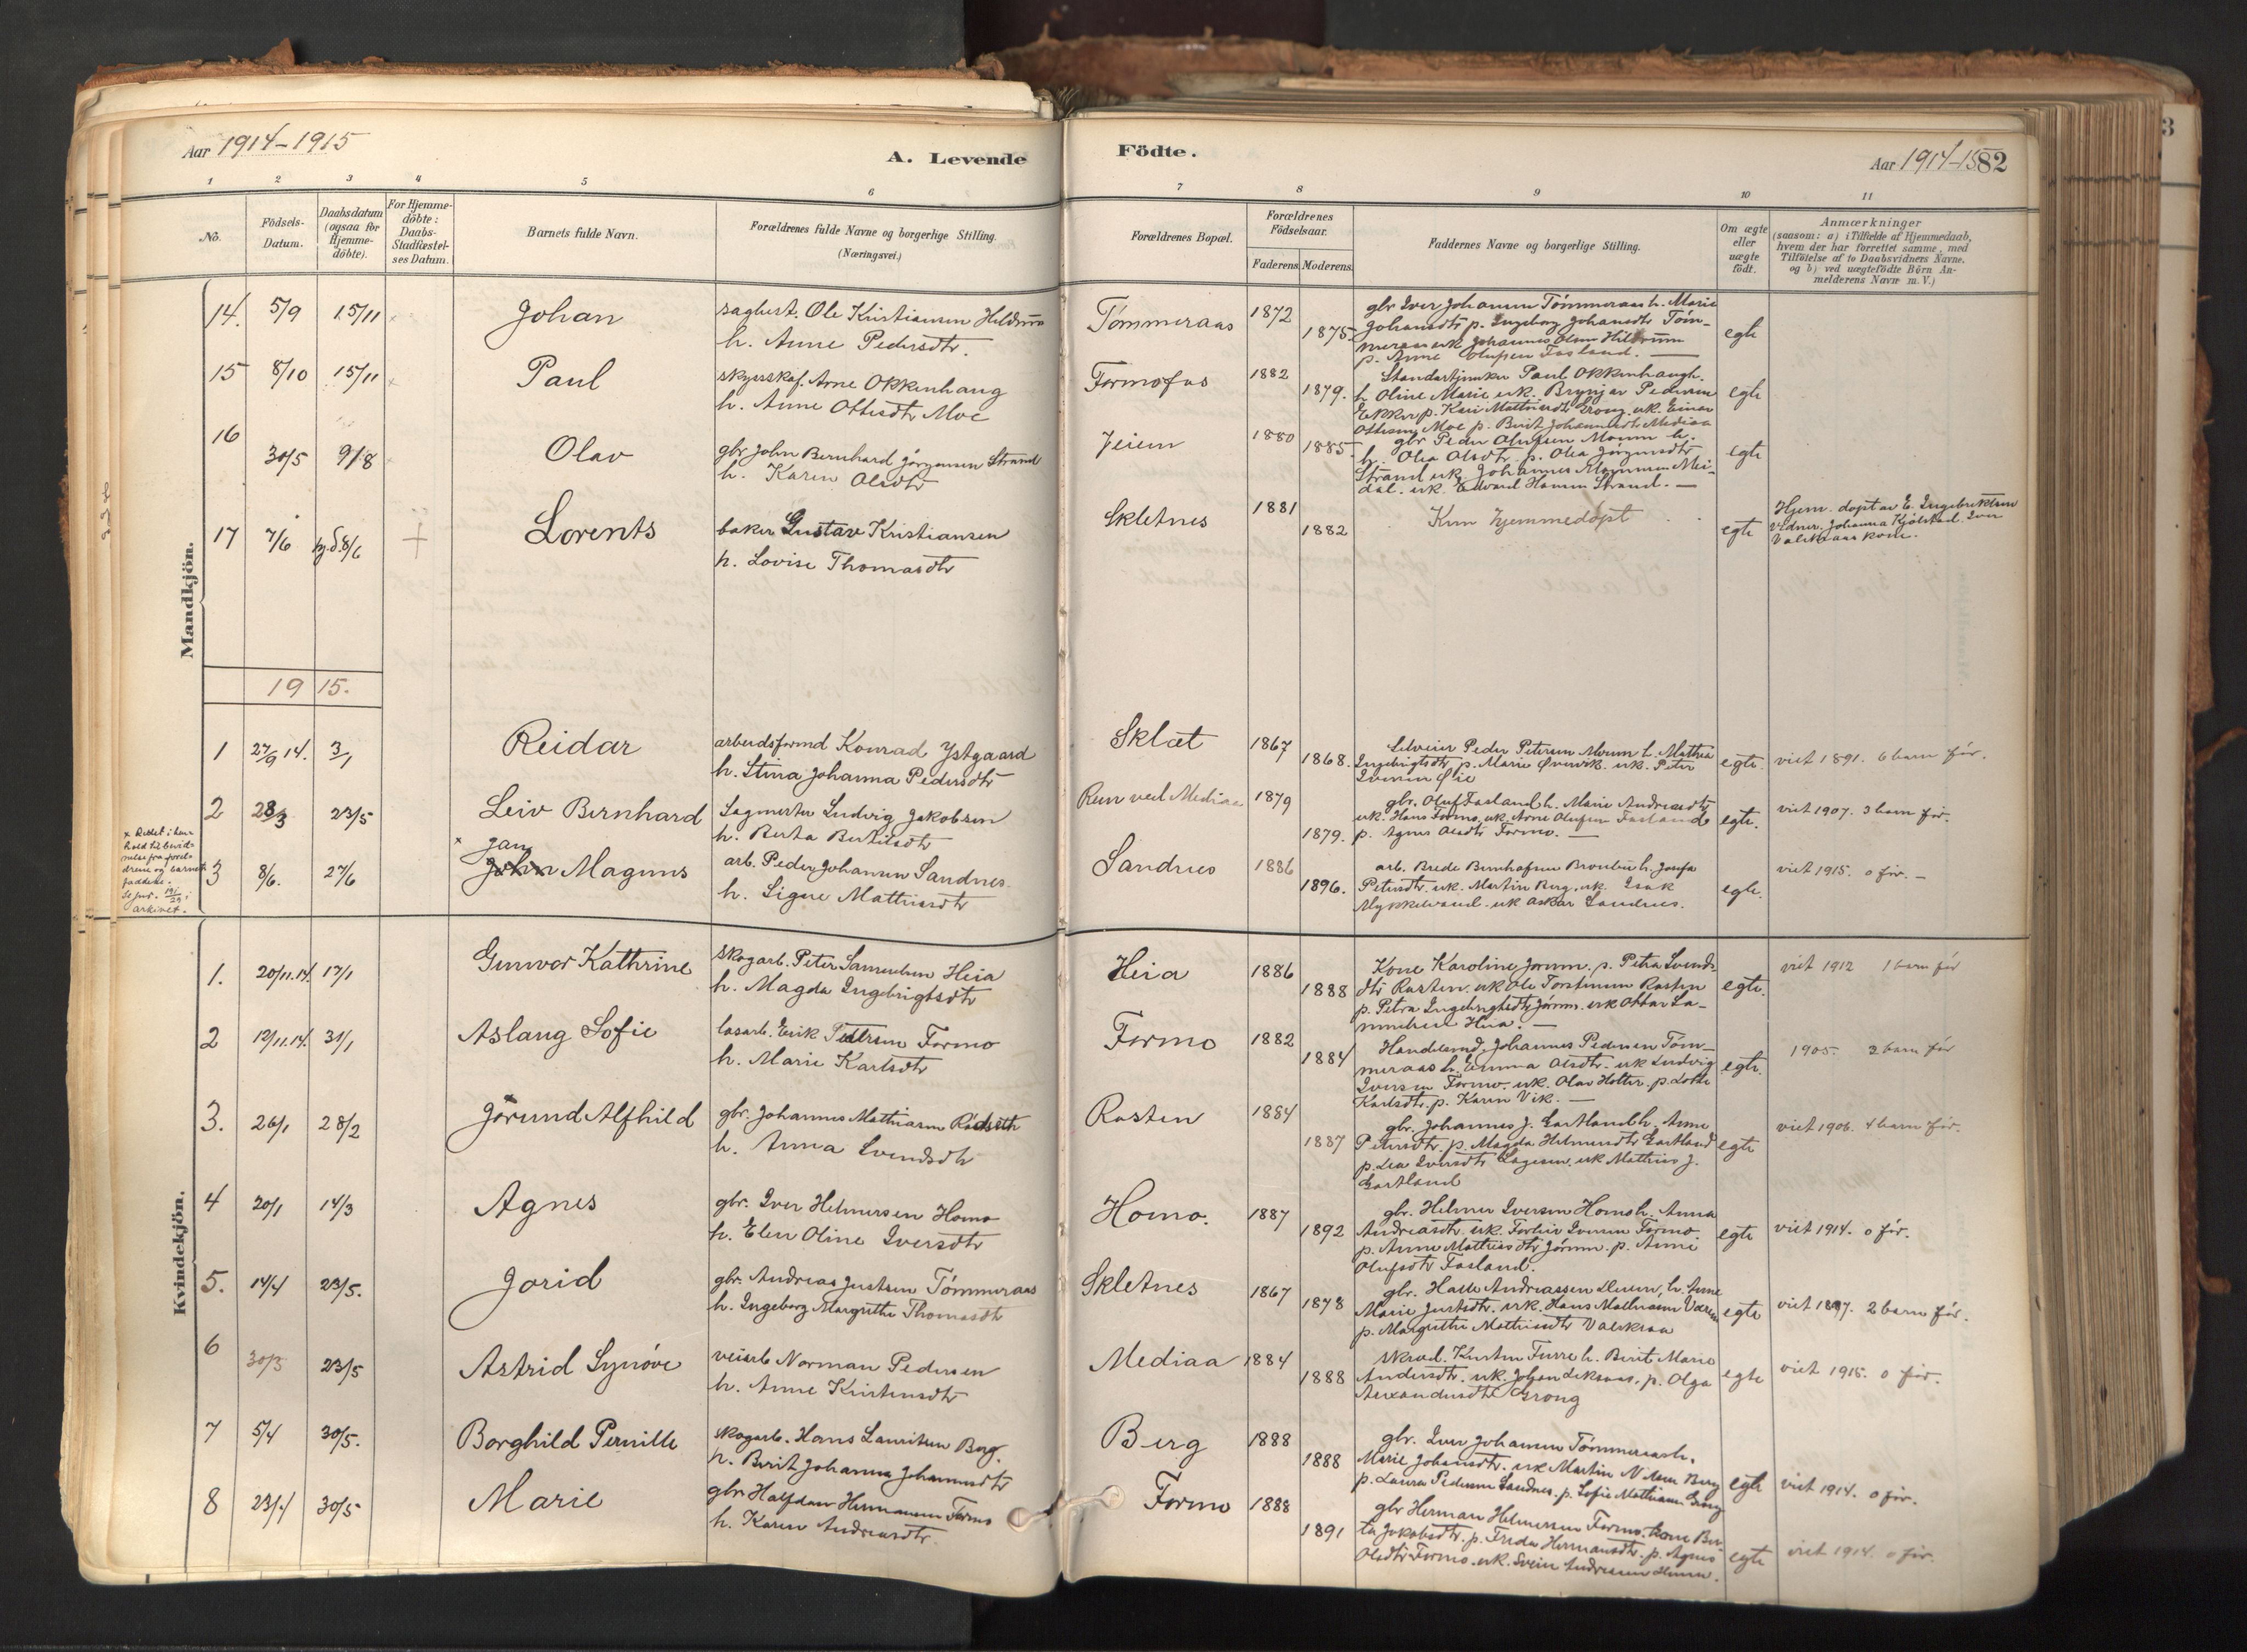 Aar 1914-1915
A. Levende
Födte.
Aar 1914-15
82
3
1 2 3 4 5 6 7 8 9 10 11
No.
Födsels-
Datum.
Daabsdatum
(ogsaa for
Hjemme-
döbte).
For Hjemme-
döbte:
Daabs-
Stadfæstel-
ses Datum.
Barnets fulde Navn.
Forældrenes fulde Navne og borgerlige Stilling.
(Næringsvei.)
Forældrenes Bopæl.
Forældrenes
Födselsaar.
Faderens. Moderens.
Faddernes Navne og borgerlige Stilling.
Om ægte
eller
uægte
födt.
Anmærkninger
(saasom: a) i Tilfælde af Hjemmedaab,
hvem der har forrettet samme, med
Tilföielse af to Daabsvidners Navne,
og b) ved uægtefödte Börn An-
melderens Navn m. V.)
Mandkjön.
14. 5/9 15/11 Johan
Ole Kristiansen
h. Anne Pedersdtr.
Tømmeraas 1872 1875.
gbr Iver Johansen Tømmeraas h. Marie
Johansdtr p. Ingeborg Johansdtr Tøm-
p. Anne Olufsen Fasland.
egte
15 8/10 15/11 Paul
Arne Okkenhaug
h. Anne Ottesdtr Moe
Formofos 1882 1879.
Paul Okkenhaug h.
h Oline Marie uk. Brynjar Pedersen
Ekker p. Kari Mathisdtr Grong uk. Einar
Ottesen Moe p. Berit Johannesdtr Mediaa
egte
16 30/5 9/8 Olav
gbr John Bernhard Jørgensen Strand
h. Karen Olsdtr
Veiem 1880 1885.
gbr Peder Olufsen Moum h.
h. Olea Olsdtr. p. Olea Jørgensdtr
Strand uk Johannes Mogensen Mei-
dal. uk. Edvard Hansen Strand.
egte
17 7/6 hj.d. 8/6 + Lorents
baker Gustav Kristiansen
h. Lovise Thomasdtr
Skletnes 1881 1882
Kun hjemmedøpt
egte
Hjem. døpt av E. Ingebriktsen
Vidner. Johanna Kjølstad. Iver
kone.
1915.
1 27/9 14. 3/1 Reidar
arbeidsformd Konrad Ystgaard
h. Stina Johanna Pedersdtr
Sklæt 1867 1868.
Peder Petersen Moum h. Mathea
Ingebrigtsdtr p. Marie Øvervik. uk. Peter
Iversen Øie
egte. viet 1891. 6 barn før.
2 28/3 23/5 Leiv Bernhard
Sagmester Ludvig Jakobsen
h. Berta Bertilsdtr
Rem ved Mediaa 1879 1879.
gbr. Oluf Fasland h. Marie Andreasdtr
uk. Hans Formo, uk. Arne Olufsen Fasland
p. Agnes Olsdtr Formo.
egte. viet 1907. 3 barn før.
x Rettet i hen-
hold til bevid-
nelse fra forel-
drene og barnets
faddere.
arkivet.
x Jan
3 8/6. 27/6 John Magnus
arb. Peder Johansen Sandnes.
h. Signe Mathisdtr
Sandnes 1886 1896.
arb. Brede h. Josefa
Petersdtr. uk. Martin Berg. uk. Isak
uk Askar Sandnes.
egte. viet 1915. 0 før.
Kvindekjön.
1. 20/11.14. 17/1 Gunvor Kathrine
skogarb. Peter Samuelsen Heia
h. Magda Ingebrigtsdtr
Heia 1886 1888
Kone Karoline Jørum. p. Petra Svends-
dtr Rosten. uk Ole Torstensen Rosten
p. Petra Ingebrigtsdtr Jørum. uk Ottar Sa-
muelsen Heia.
egte. viet 1912 1 barn før
2 12/11.14. 31/1 Aslaug Sofie
løsarb. Erik Petersen Formo
h. Marie Karlsdtr
Formo 1882 1884
Handelsmd. Johannes Pedersen Tøm-
meraas h. Emma Olsdtr. uk Ludvig
Iversen Formo. uk. Olav Holter. p. Lotte
Karlsdtr. p. Karen Vik.
egte. 1905. 3 barn før
3. 26/1 28/2 Jørund Alfhild
gbr. Johannes Mathiasen Rødseth
h. Anna Svendsdtr
Rosten 1884 1887
gbr. Johannes J. Gartland h. Anne
Petersdtr. p. Magda Helmersdtr Gartland
p. Lea Iversdtr uk Mathias J.
Gartland
egte viet 1906. 4 barn før.
4 20/1 14/3 Agnes
gbr. Iver Helmersen Homo
h. Elen Oline Iversdtr
Homo. 1887 1892
gbr. Helmer Iversen Homo h. Anna
Andreasdtr. uk. Torleiv Iversen Formo.
p. Anne Mathiasdtr Jørum. p. Anne
Olufsdtr Fasland.
egte viet 1914. 0 før.
5. 14/4 23/5. Jorid
gbr. Andreas Justsen Tømmeraas
h. Ingeborg Margrethe Thomasdtr
Skletnes 1867 1878
gbr. Halle Andreassen h. Anne
Marie Justsdtr. uk. Hans Mathiasen
p. Margrethe Mathiasdtr
egte viet 1897. 2 barn før.
6 30/3 23/5 Astrid Synøve
veiarb Norman Pedersen
h. Anne Kristensdtr
Mediaa 1884 1888
Kristen Furre h. Berit Marie
Andersdtr. uk. Johan p. Olga
Grong
egte viet 1915. 0 før.
7 5/4 30/5. Borghild Pernille
skogarb. Hans Lauritsen Berg.
h. Berit Johanna Johannesdtr
Berg 1888 1888
gbr. Iver Johansen Tømmeraas h.
Marie Johansdtr. uk Martin Nilsen Berg
p. Laura Pedersen Sandnes. p. Sofie Mathiasen Grong
egte viet 1914. 0 før.
8 23/4 30/5 Marie
gbr. Halfdan Hermansen Formo
h. Karen Andreasdtr.
Formo 1888 1891
gbr Herman Helmersen Formo. kone Ber-
ta Jakobsdtr. p. Frida Hermansdtr. p. Agnes
Olsdtr Formo. uk. Svein Andreassen
egte viet 1914. 0 før.